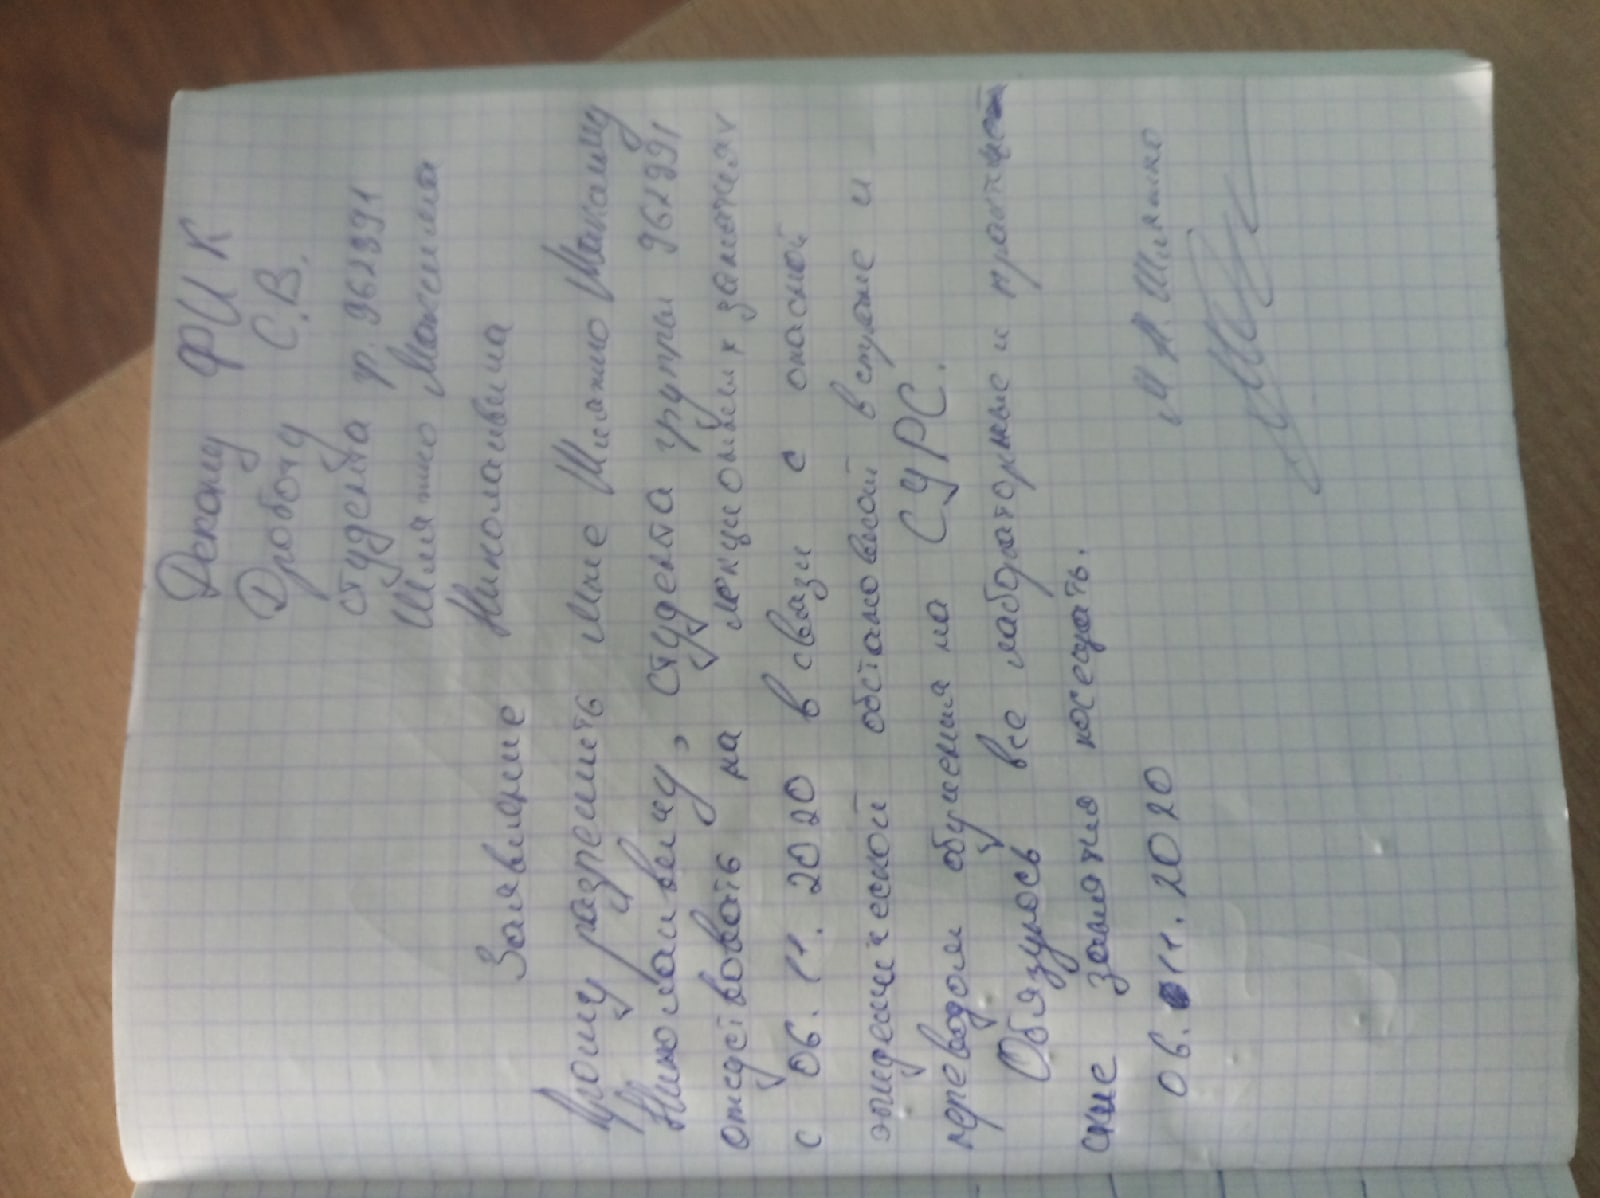 Декану ФИК
Дроботу С.В.
студента гр. 962991
Шляжко Максима
Николаевича
Заявление
Прошу разрешить мне Шляжко Максиму
Николаевичу, студента группы 962991
отсудствовать на лекционных занятиях
с 06.11.2020 в связи с опасной
эпидемической обстановкой в стране и
переводом обучения на СУРС.
Обязуюсь все лабораторные и практиче
ские занятия посещать.
06.11.2020 М.Н. Шляжко